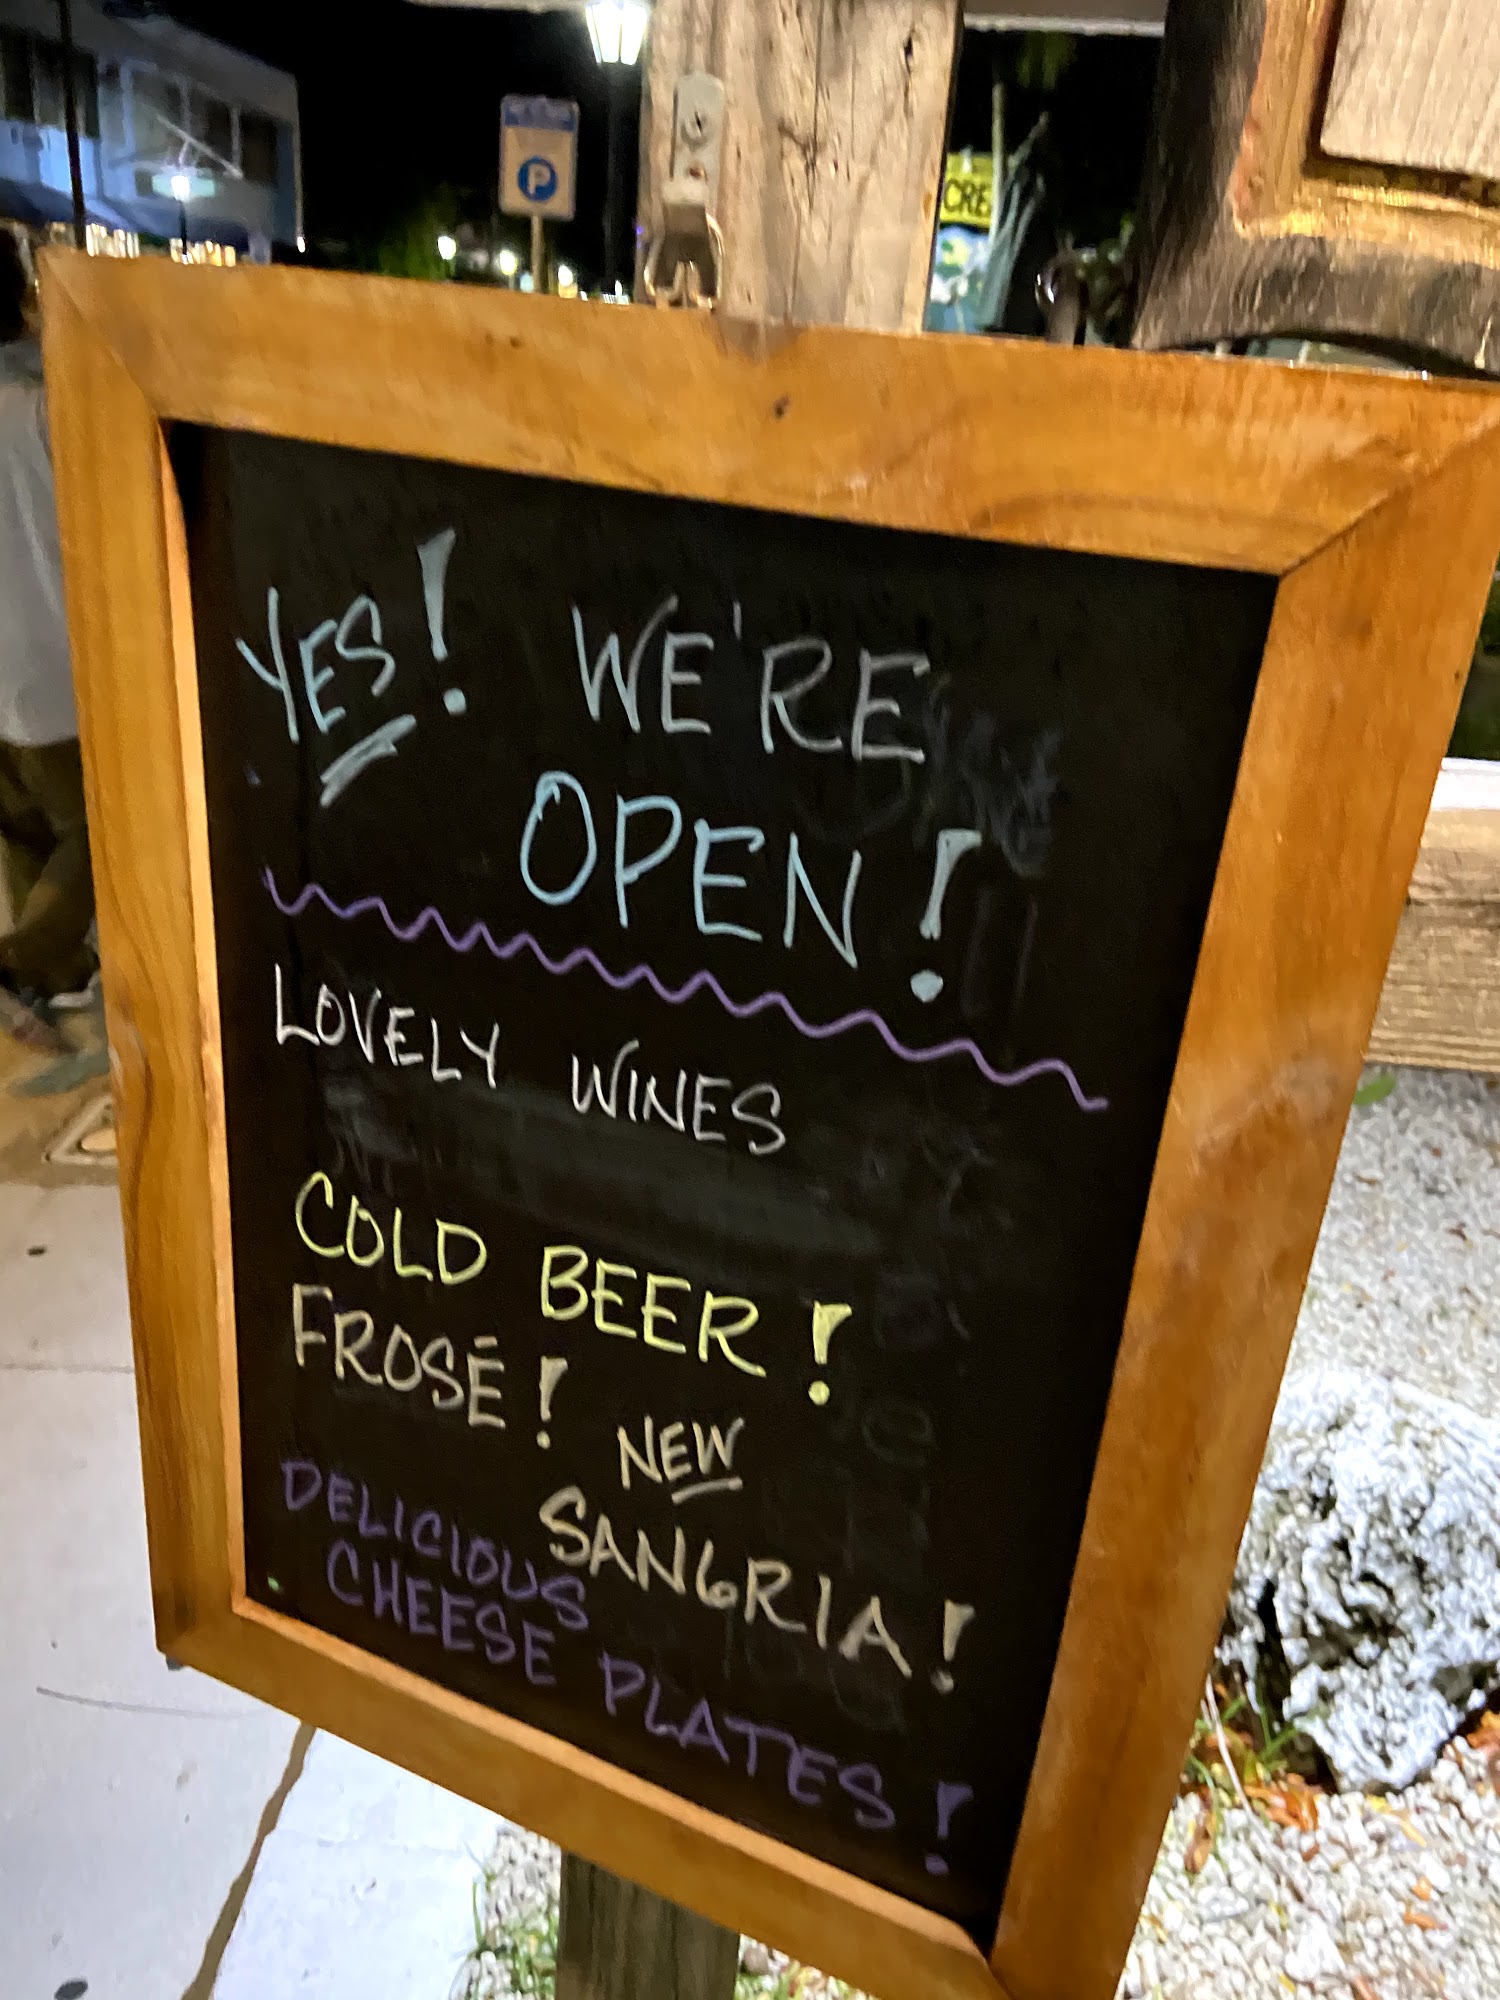 P
CRE
YES! WE'RE
OPEN!
LOVELY WINES
COLD BEER!
FROSÉ!
NEW
SANGRIA!
DELICIOUS
CHEESE PLATES!